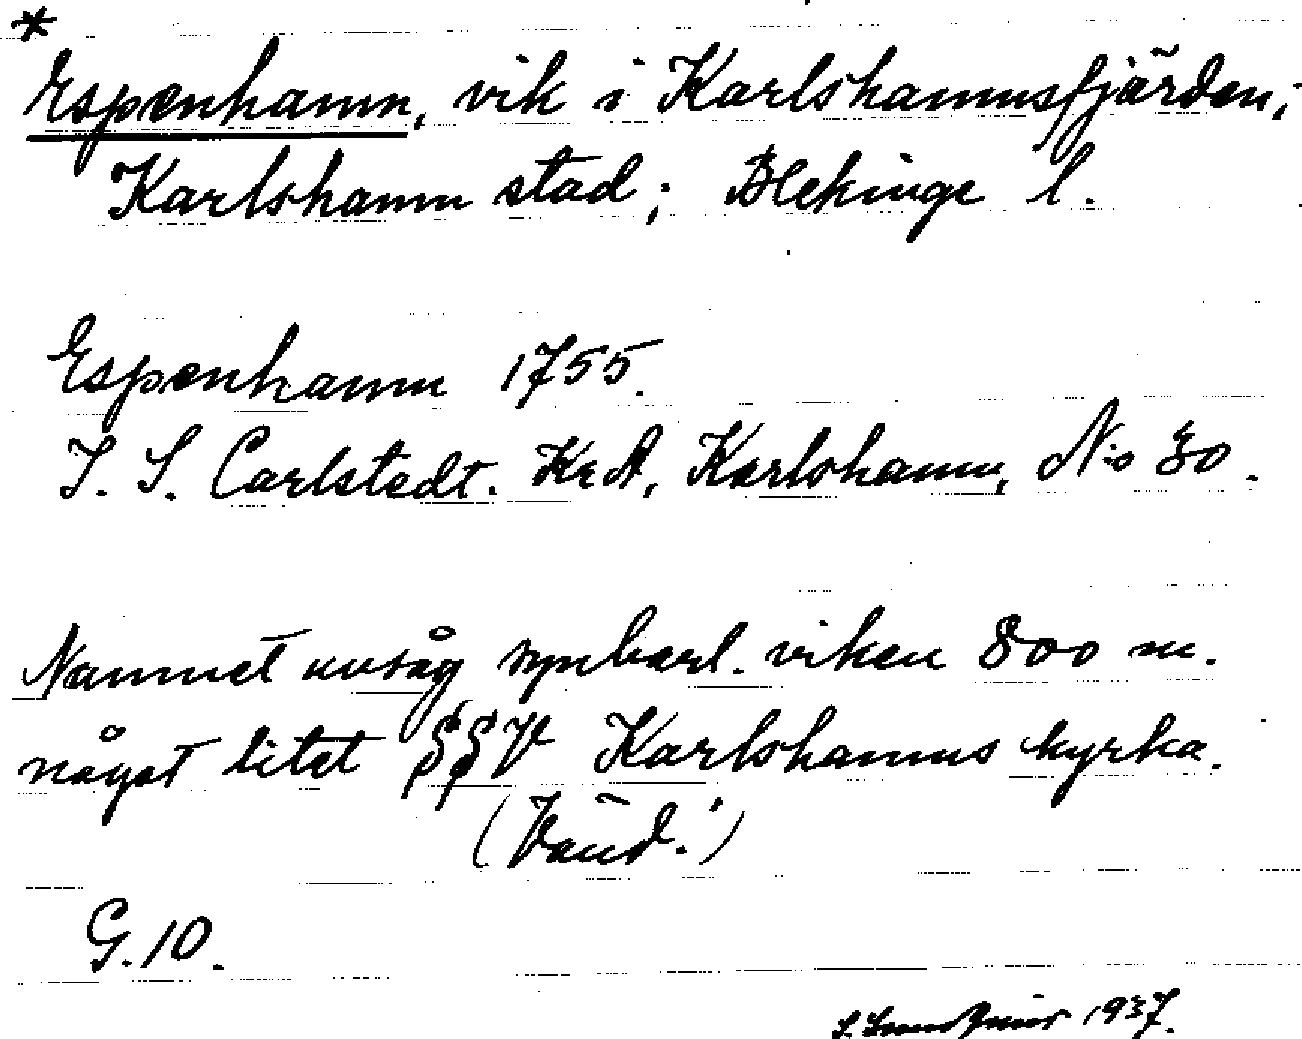 *
Espenhamn, vik i Karlshamnsfjärden;
Karlshamn stad; Blekinge l.
Espenhamn 1755.
J. S. Carlstedt. KrA, Karlshamn, N:o 30.
Namnet utsåg synbarl. viken 800 m.
något litet SSV Karlshamns kyrka.
(Vänd!)
G. 10.
1937.